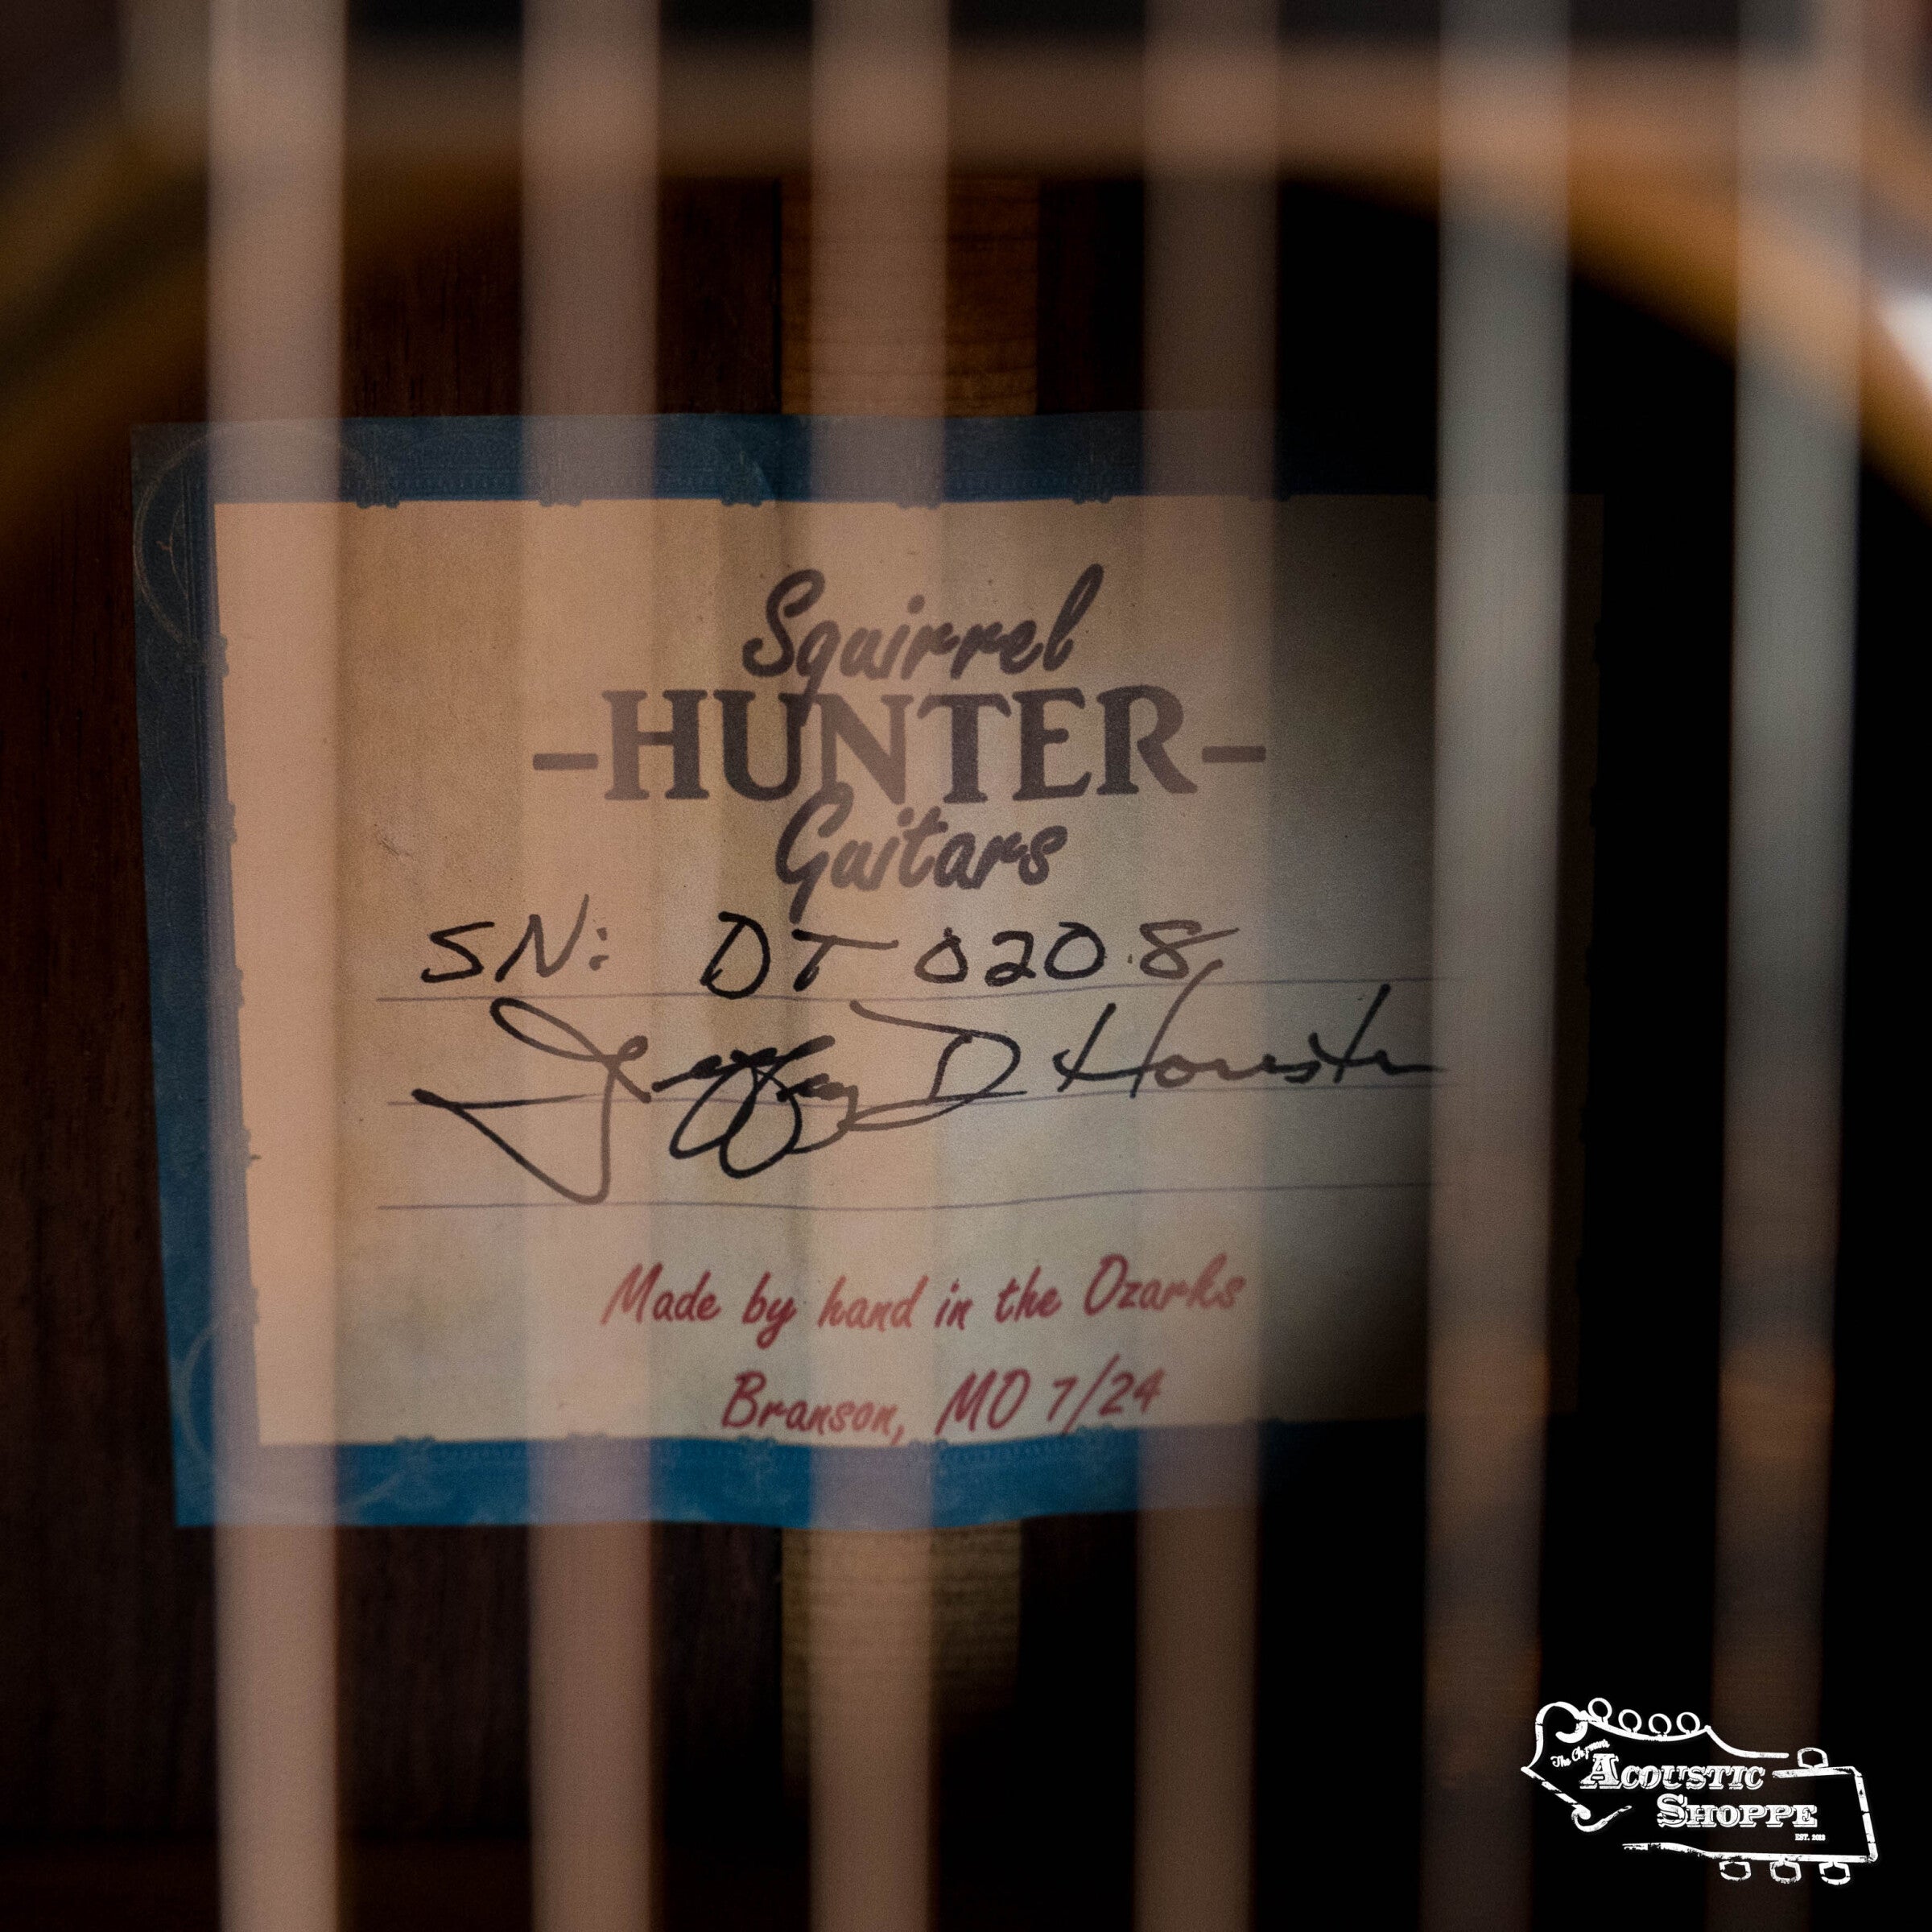 Squirrel
-HUNTER-
Guitars
SN: DT 020.8
Jeffrey D Houston
Made by hand in the Ozarks
Branson, MO 7/24
ACOUSTIC
SHOPPE
EST. 2013